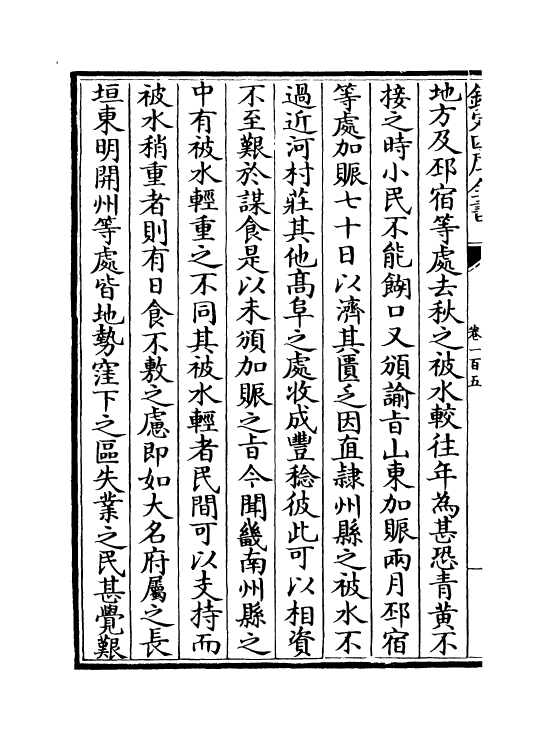 欽定四庫全書
卷一百五
一
地方及邳宿等處去秋之被水較往年為甚恐青黄不
接之時小民不能餬口又頒諭㫖山東加賑兩月邳宿
等處加賑七十日以濟其匱乏因直隷州縣之被水不
過近河村莊其他髙阜之處收成豐稔彼此可以相資
不至艱於謀食是以未頒加賑之㫖今聞畿南州縣之
中有被水輕重之不同其被水輕者民間可以支持而
被水稍重者則有日食不敷之慮即如大名府屬之長
垣東明開州等處皆地勢窪下之區失業之民甚覺艱